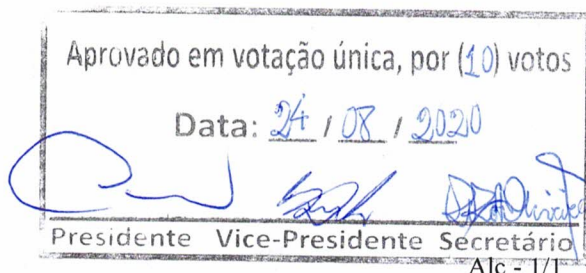 Aprovado em votação única, por (10) votos
Data: 24 / 08 / 2020
Presidente Vice-Presidente Secretário
Alc - 1/1